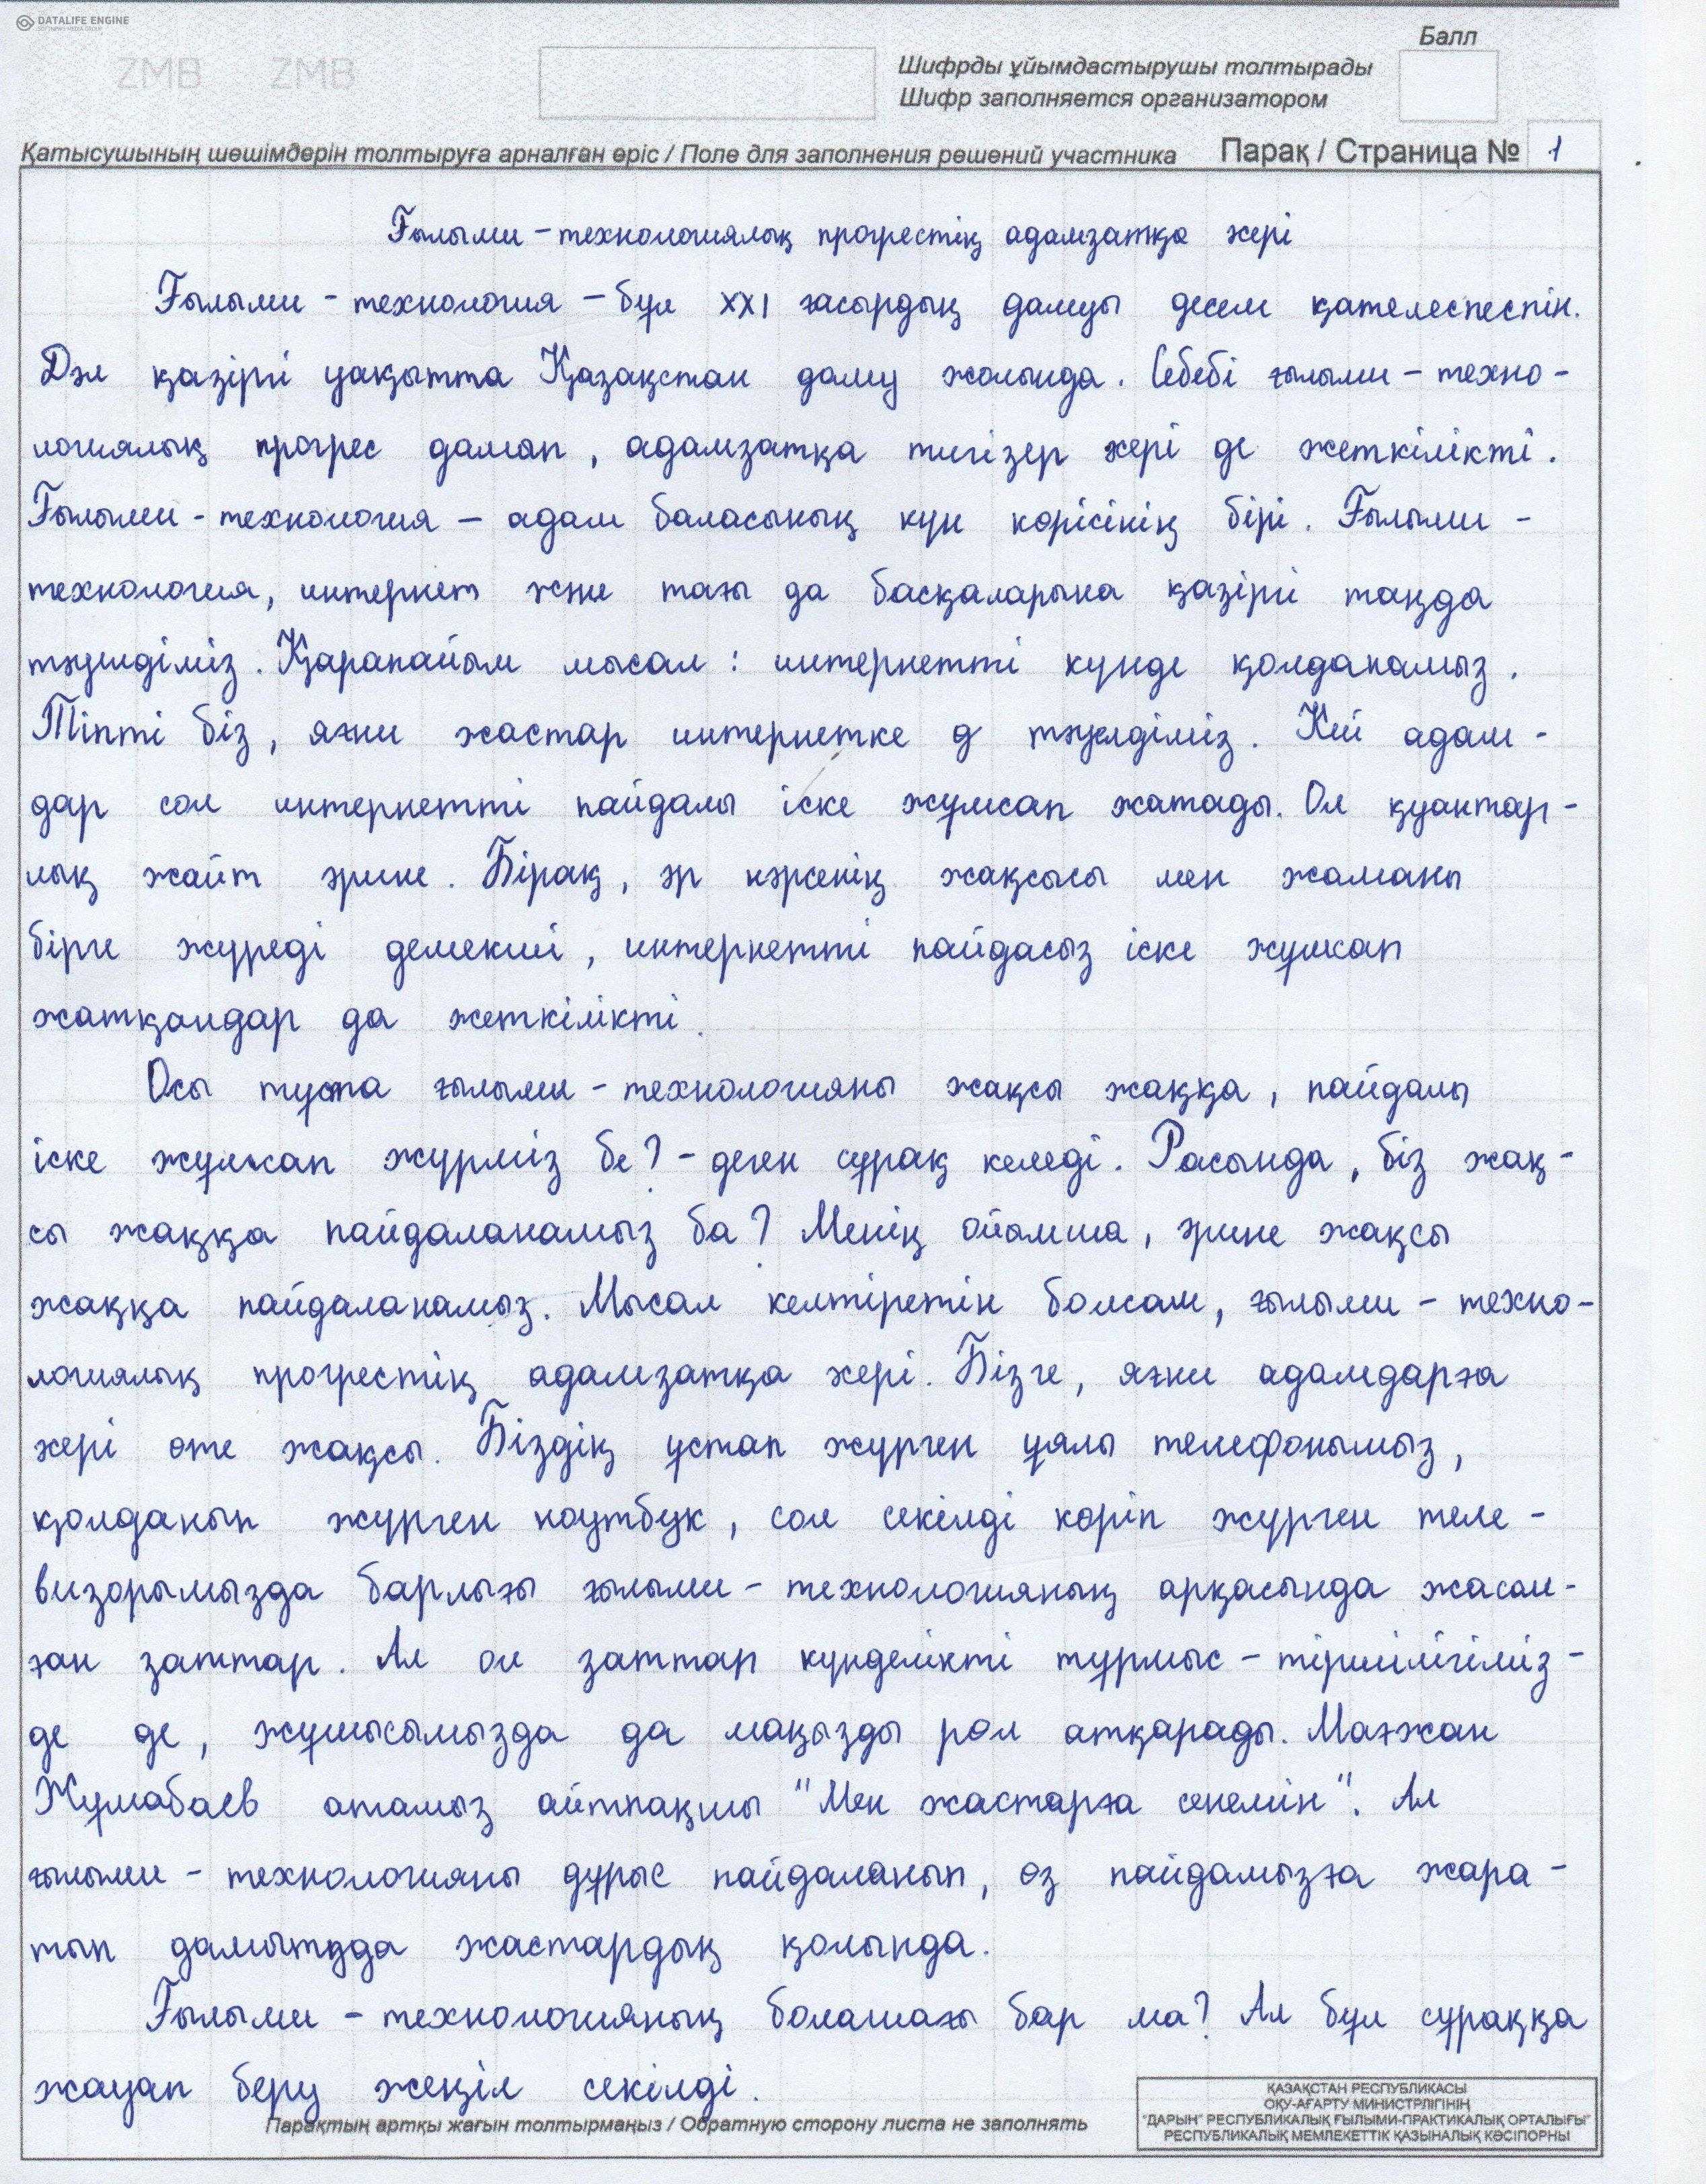 DATALIFE ENGINE
ZMB ZMB
Балл
Шифрды ұйымдастырушы толтырады
Шифр заполняется организатором
Қатысушының шешімдерін толтыруға арналған өріс / Поле для заполнения решений участника Парақ / Страница № 1
Ғылыми - технологиялық прогрестің адамзатқа әсері
Ғылыми - технология - бұл XXI ғасырдың дамуы десем қателеспеспін.
Дәл қазіргі уақытта Қазақстан даму жолында. Себебі ғылыми - техно-
логиялық прогрес дамып, адамзатқа тигізер әсері де жеткілікті.
Ғылыми - технология - адам баласының күн көрісінің бірі. Ғылыми -
технология, интернет және тағы да басқаларына қазіргі таңда
тәуелдіміз. Қарапайым мысал: интернетті күнде қолданамыз.
Тіпті біз, яғни жастар интернетке д тәуелдіміз. Кей адам-
дар сол интернетті пайдалы іске жұмсап жатады. Ол қуантар-
лық жайт әрине. Бірақ, әр нәрсенің жақсысы мен жаманы
бірге жүреді демекші, интернетті пайдасыз іске жұмсап
жатқандар да жеткілікті.
Осы тұста ғылыми - технологияны жақсы жаққа, пайдалы
іске жұмсап жүрміз бе? - деген сұрақ келеді. Расында, біз жақ-
сы жаққа пайдаланамыз ба? Менің ойымша, әрине жақсы
жаққа пайдаланамыз. Мысал келтіретін болсам, ғылыми - техно-
логиялық прогрестің адамзатқа әсері. Бізге, яғни адамдарға
әсері өте жақсы. Біздің ұстап жүрген ұялы телефонымыз,
қолданып жүрген ноутбук, сол секілді көріп жүрген теле-
визорымызда барлығы ғылыми - технологияның арқасында жасал-
ған заттар. Ал ол заттар күнделікті тұрмыс - тіршілігіміз-
де де, жұмысымызда да маңызды рол атқарады. Мағжан
Жұмабаев атамыз айтпақшы "Мен жастарға сенемін". Ал
ғылыми - технологияны дұрыс пайдаланып, өз пайдамызға жара-
тып дамытуда жастардың қолында.
Ғылыми - технологияның болашағы бар ма? Ал бұл сұраққа
жауап беру жеңіл секілді.
Парақтың артқы жағын толтырмаңыз / Обратную сторону листа не заполнять
ҚАЗАҚСТАН РЕСПУБЛИКАСЫ
ОҚУ-АҒАРТУ МИНИСТРЛІГІНІҢ
"ДАРЫН" РЕСПУБЛИКАЛЫҚ ҒЫЛЫМИ-ПРАКТИКАЛЫҚ ОРТАЛЫҒЫ"
РЕСПУБЛИКАЛЫҚ МЕМЛЕКЕТТІК ҚАЗЫНАЛЫҚ КӘСІПОРНЫ